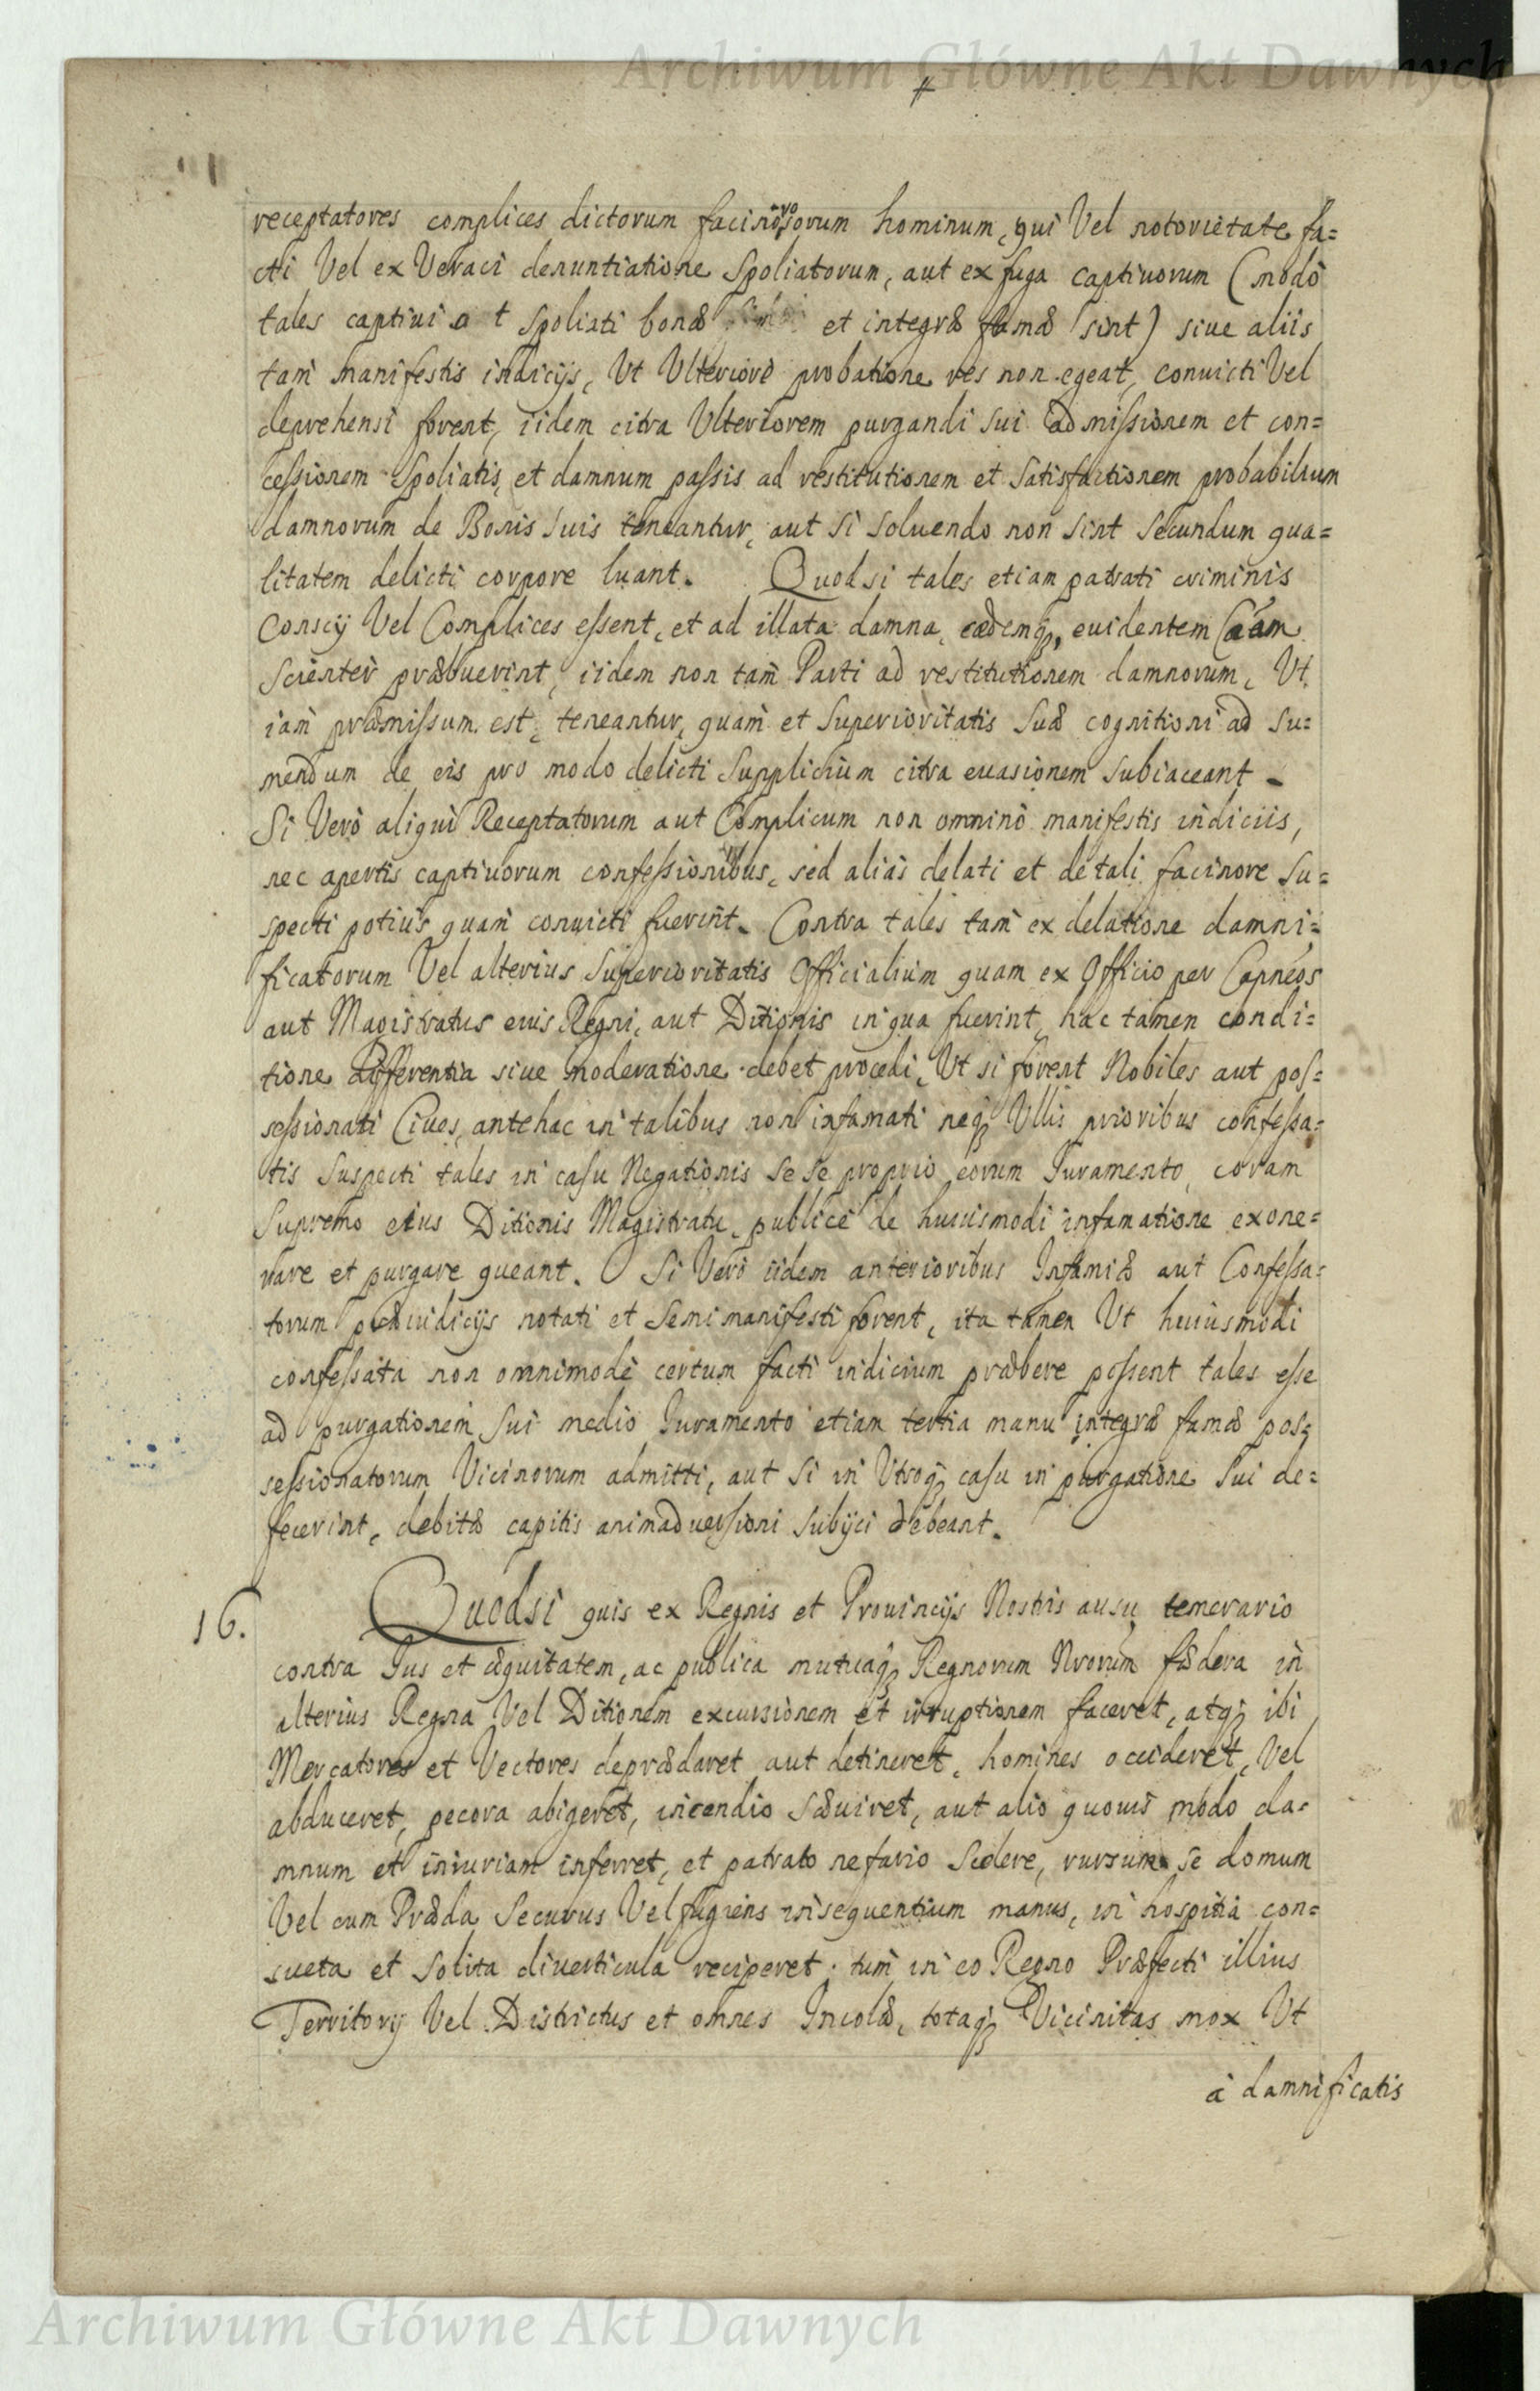 Archiwum Główne Akt Dawnych
receptatores complices dictorum facinorosorum hominum, qui Vel notorietate fa=
cti Vel ex Veraci denuntiatione Spoliatorum, aut ex fuga captiuorum (modò
tales captiui a t Spoliati bonæ et integræ famæ sint) siue aliis
tam manifestis indicijs, Vt Vlteriore probatione res non egeat, conuicti Vel
deprehensi forent, iidem citra Vlteriorem purgandi sui admissionem et con=
cessionem Spoliatis, et damnum passis ad restitutionem et Satisfactionem probabilium
damnorum de Bonis suis teneantur, aut si soluendo non sint Secundum qua=
litatem delicti corpore luant. Quodsi tales etiam patrati criminis
Conscij Vel Complices essent, et ad illata damna, cædemq₃, euidentem Caam
Scienter præbuerint, iidem non tam Parti ad restitutionem damnorum, Vt
iam præmissum est, teneantur, quam et Superioritatis Suæ cognitioni ad su=
mendum de eis pro modo delicti Supplicium citra euasionem subiaceant.
Si Verò aliqui Receptatorum aut Complicum non omninò manifestis indiciis,
nec apertis captiuorum confessionibus, sed alias delati et de tali facinore su=
specti potius quam conuicti fuerint. Contra tales tam ex delatione damni=
ficatorum Vel alterius Superioritatis Officialium quam ex Officio per Capneos
aut Magistratus eius Regni, aut Ditionis in qua fuerint, hac tamen condi=
tione differentia siue moderatione debet procedi, Vt si forent Nobiles aut pos=
sessionati Ciues, antehac in talibus non infamati neq₃ Vllis prioribus confessa=
tis Suspecti tales in casu Negationis se se proprio eorum Iuramento, coram
Supremo eius Ditionis Magistratu publicè de huiusmodi infamatione exone=
rare et purgare queant. Si Verò iidem anterioribus Infamiæ aut Confessa=
torum præiudicijs notati et Semimanifesti forent, ita tamen Vt huiusmodi
confessata non omnimodè certum facti indicium præbere possent tales esse
ad purgationem sui medio Iuramento etiam tertia manu integræ famæ pos=
sessionatorum Vicinorum admitti, aut si in Vtroq₃ casu in purgatione sui de=
fecerint, debitæ capitis animaduersioni subijci debeant.
16. Quodsi quis ex Regnis et Prouincijs Nostris ausu temerario
contra Ius et æquitatem, ac publica mutuaq₃ Regnorum Nrorum fædera in
alterius Regna Vel Ditionem excursionem et irruptionem faceret, atq₃ ibi
Mercatores et Vectores deprædaret aut detineret, homines occideret, Vel
abduceret, pecora abigeret, incendio sæuiret, aut alio quouis modo da=
mnum et iniuriam inferret, et patrato nefario Scelere, rursum se domum
Vel cum Præda Securus Vel fugiens insequentium manus, in hospitia con=
sueta et Solita diuerticula reciperet; tum in eo Regno Præfecti illius
Territorij Vel Districtus et omnes Incolæ, totaq₃ Vicinitas mox Vt
à damnificatis
Archiwum Główne Akt Dawnych